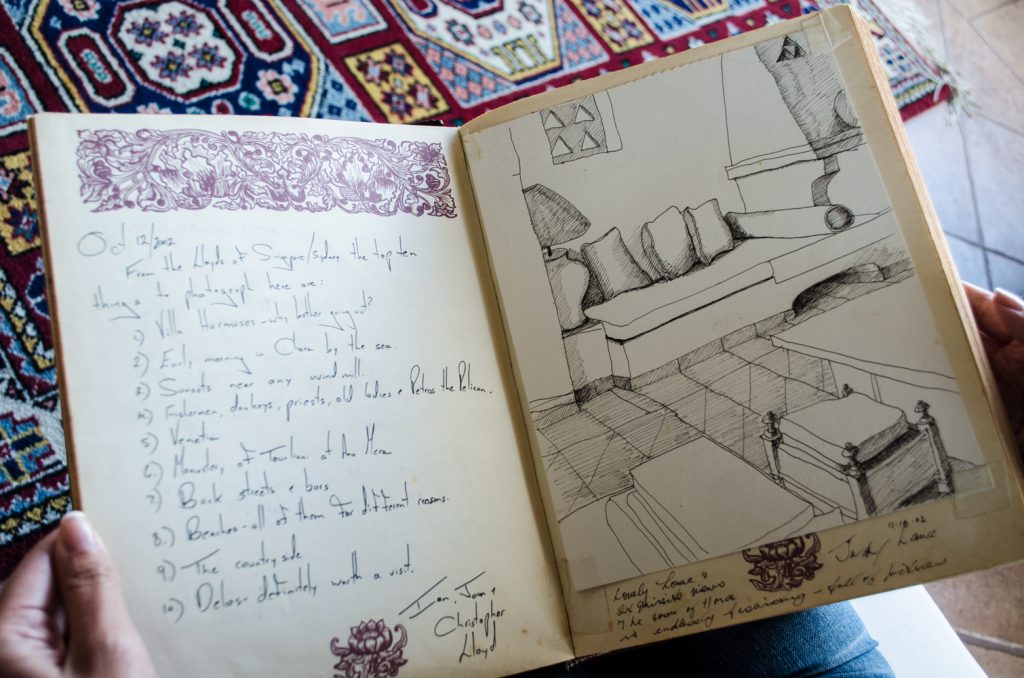 Oct 12/2002
From the Lloyds of Singapore/Sydney the top ten
things to photograph here are:
1) Villa Hurmoses - why bother going out?
2) Early morning in Chora by the sea.
3) Sunsets near any windmill.
4) Fishermen, donkeys, priests, old ladies & Petros the Pelican.
5) Venetia
6) Monastery of Tourliani at Ano Mera
7) Back streets & bars
8.) Beaches - all of them for different reasons.
9) The countryside
10) Delos - definitely worth a visit.
Ian, Joan &
Christopher
Lloyd
11-10-02
Judy Lane
Lovely Home &
views
is endlessly - full of